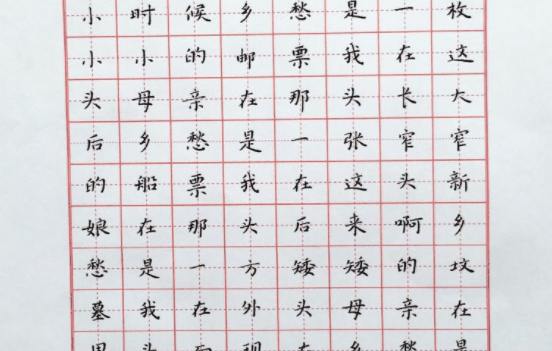 小时候乡愁是一枚
小小的邮票我在这
头母亲在那头长大
后乡愁是一张窄窄
的船票我在这头新
娘在那头后来啊乡
愁是一方矮矮的坟
墓我在外头母亲在
里头而现在乡愁是